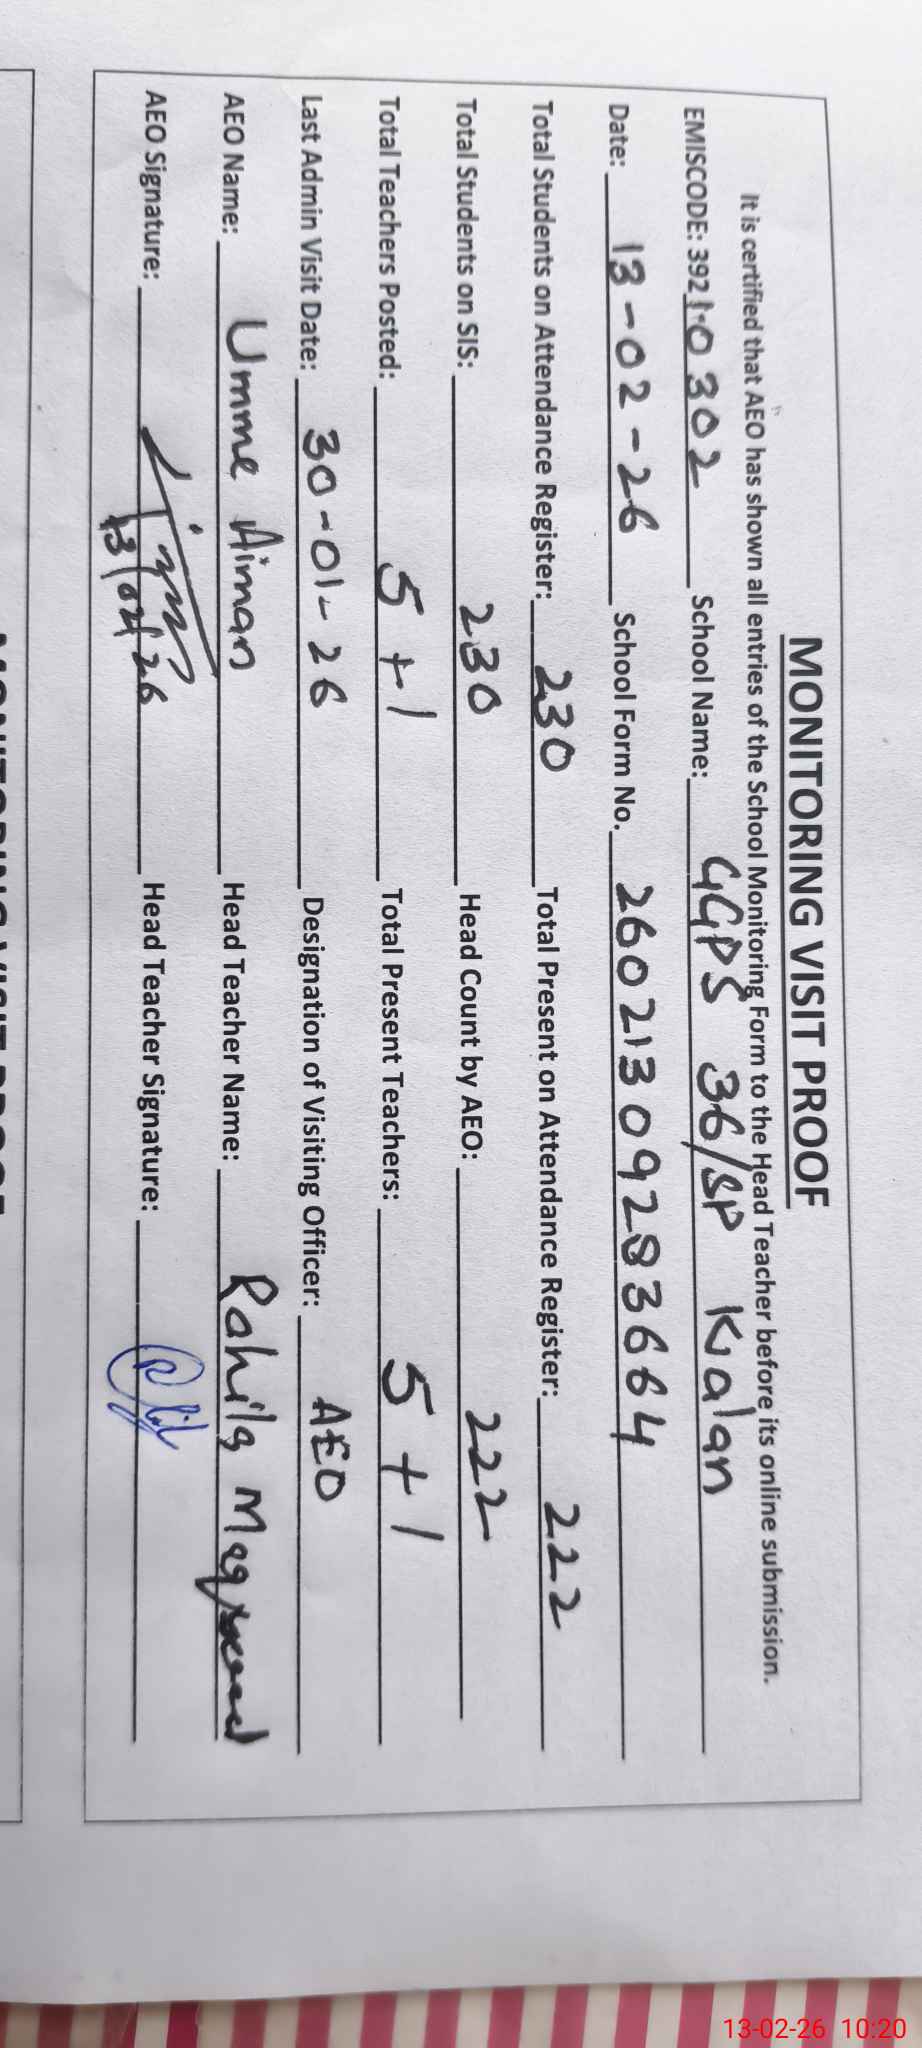 MONITORING VISIT PROOF
It is certified that AEO has shown all entries of the School Monitoring Form to the Head Teacher before its online submission.
EMISCODE: 39210302 School Name: GGPS 36/SP Kalan
Date: 13-02-26 School Form No. 26021309283664
Total Students on Attendance Register: 230 Total Present on Attendance Register: 222
Total Students on SIS: 230 Head Count by AEO: 222
Total Teachers Posted: 5+1 Total Present Teachers: 5+1
Last Admin Visit Date: 30-01-26 Designation of Visiting Officer: AEO
AEO Name: Umme Aiman Head Teacher Name: Rahila Maqsood
AEO Signature: 13/02/26 Head Teacher Signature:
13-02-26 10:20